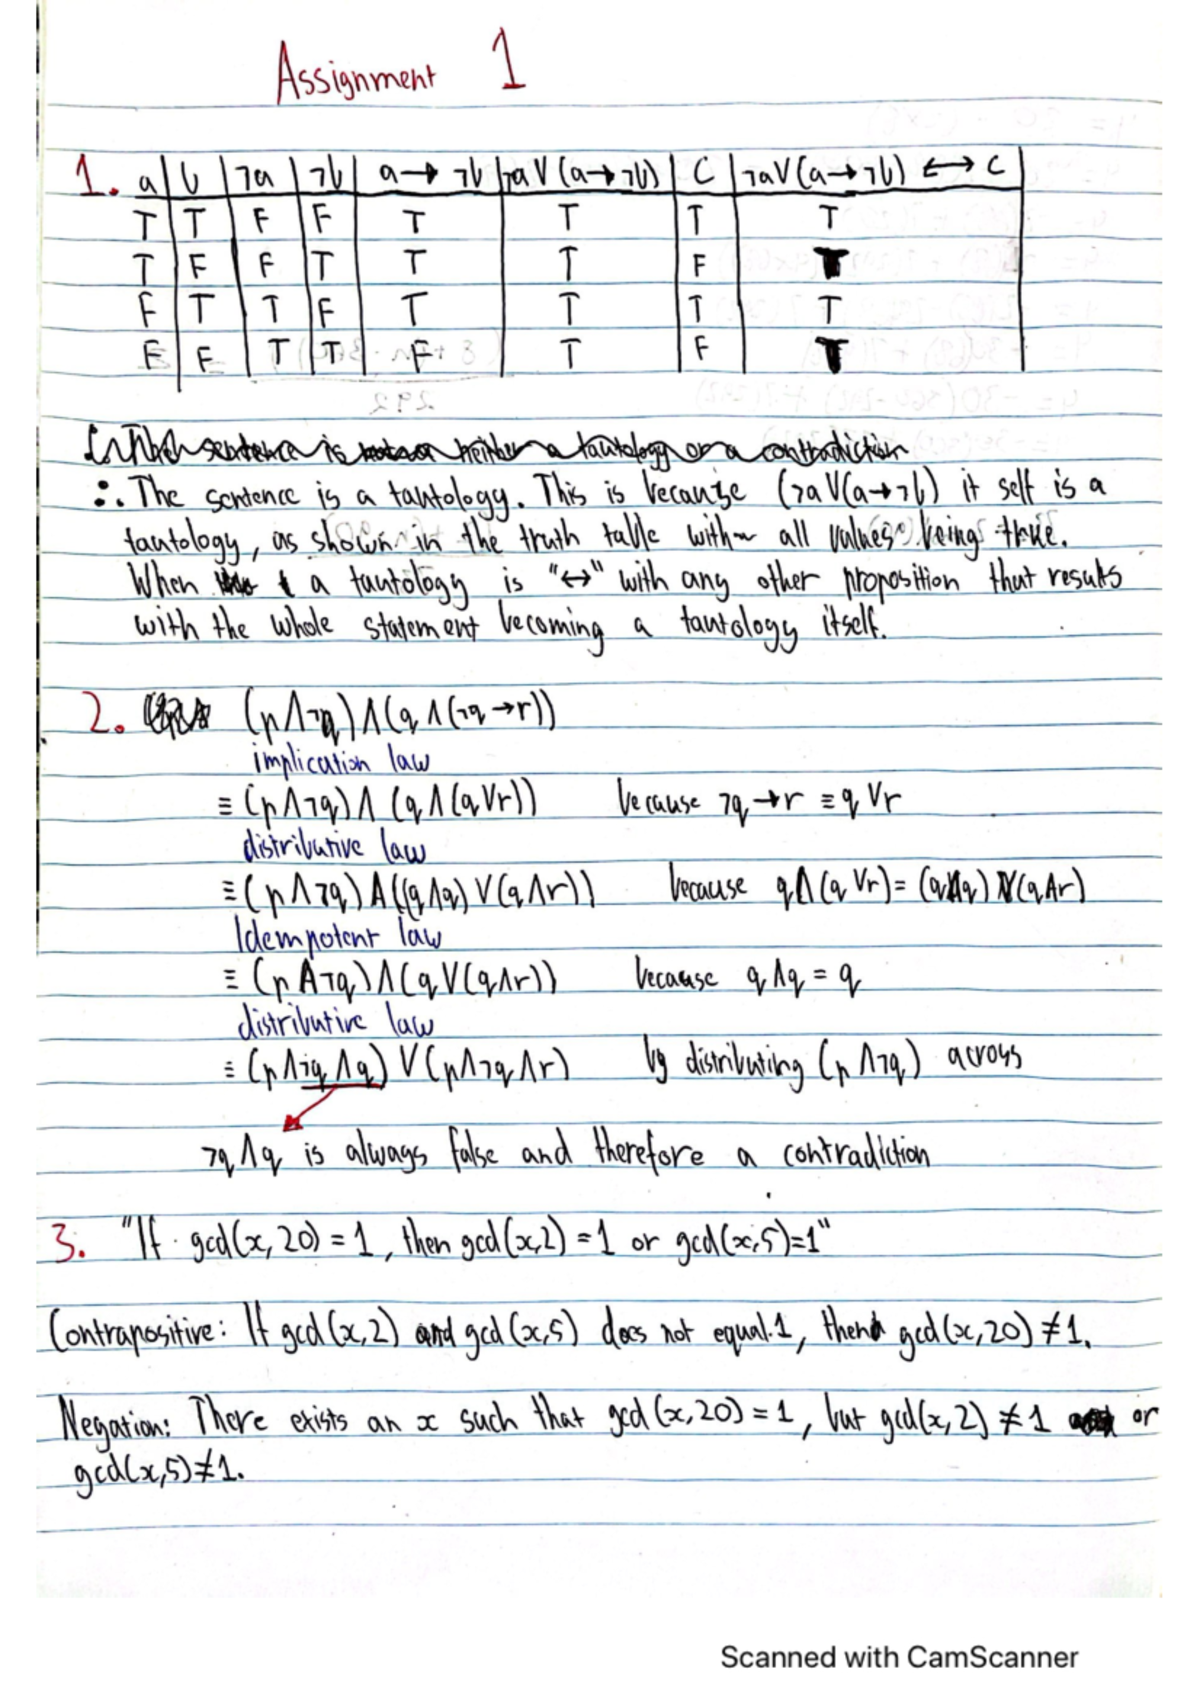 Assignment 1
1. a b ¬a ¬b a → ¬b ¬a V (a→¬b) C ¬a V (a→¬b) ↔ C
T T F F T T T T
T F F T T T F T
F T T F T T T T
F F T T F T F T
∴ The sentence is a tautology. This is because (¬a V (a→¬b) it self is a
tautology, as shown in the truth table with all values being true.
When a tautology is "↔" with any other proposition that results
with the whole statement becoming a tautology itself.
2. (p ∧ ¬q) ∧ (q ∧ (¬q → r))
implication law
≡ (p ∧ ¬q) ∧ (q ∧ (q V r)) because ¬q → r ≡ q V r
distributive law
≡ (p ∧ ¬q) ∧ ((q ∧ q) V (q ∧ r)) because q ∧ (q V r) = (q ∧ q) V (q ∧ r)
Idempotent law
≡ (p ∧ ¬q) ∧ (q V (q ∧ r)) because q ∧ q = q
distributive law
≡ (p ∧ ¬q ∧ q) V (p ∧ ¬q ∧ r) by distributing (p ∧ ¬q) across
¬q ∧ q is always false and therefore a contradiction
3. "If gcd(x, 20) = 1, then gcd(x,2) = 1 or gcd(x,5)=1"
Contrapositive: If gcd(x,2) and gcd(x,5) does not equal 1, then gcd(x,20) ≠ 1.
Negation: There exists an x such that gcd(x,20) = 1, but gcd(x,2) ≠ 1 or
gcd(x,5) ≠ 1.
Scanned with CamScanner